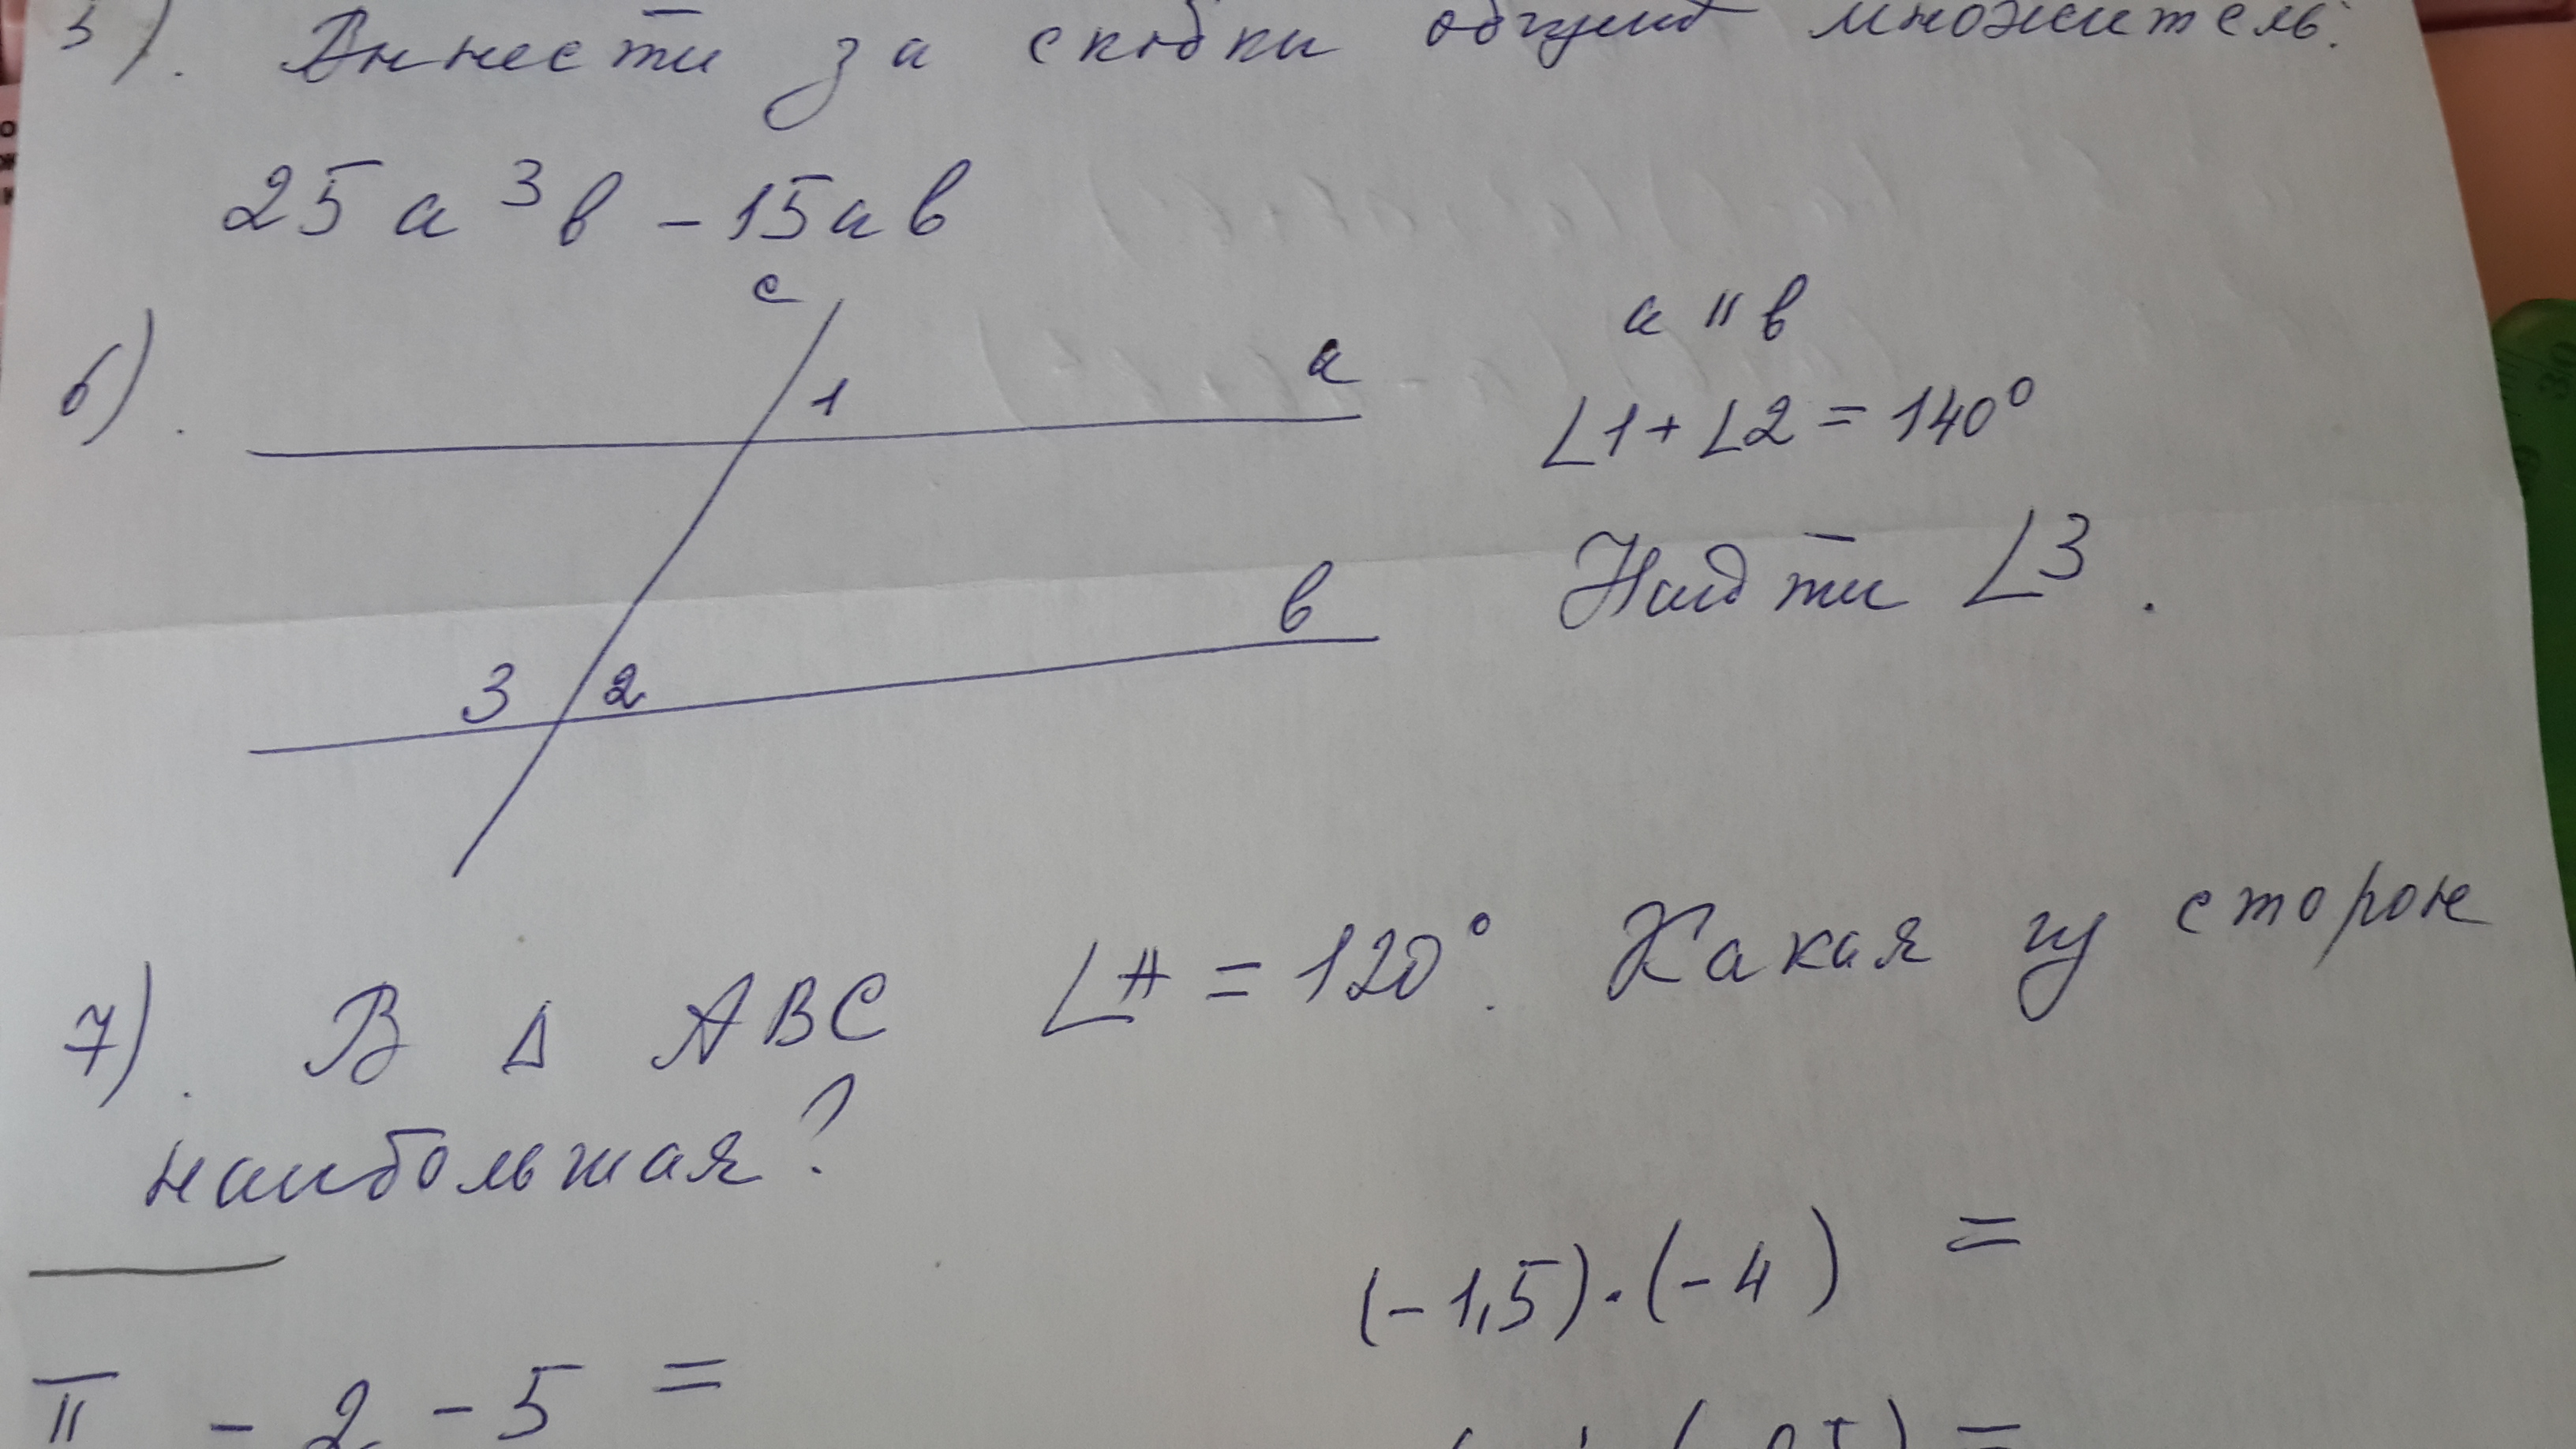 5). Вынести за скобки общий множитель:
25a³b - 15ab
6).
c
1
a
3
2
b
a || b
∠1 + ∠2 = 140°
Найти ∠3.
7). В Δ ABC ∠A = 120°. Какая из сторон
наибольшая?
(-1,5)·(-4) =
II - 2 - 5 =